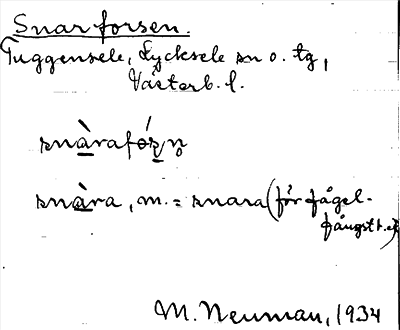 Snarforsen.
Tuggensele, Lycksele sn o. tg,
Västerb. l.
snàrafórn
snàra, m. = snara (för fågel-
fångst
M. Neuman, 1934